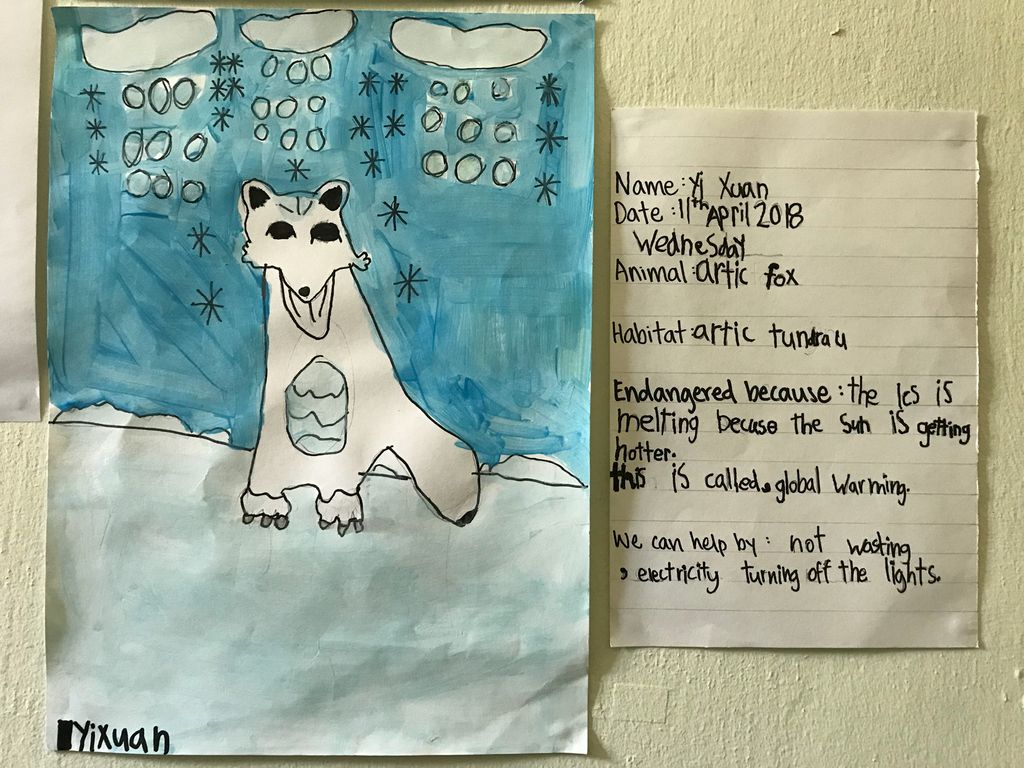 Name: Yi Xuan
Date: 11th April 2018
Wednesday
Animal: artic fox
Habitat: artic tundrau
Endangered because: the Ics is
melting becuse the Sun is getting
hotter.
this is called, global warming.
We can help by: not wasting
, electricity turning off the lights.
Yixuan